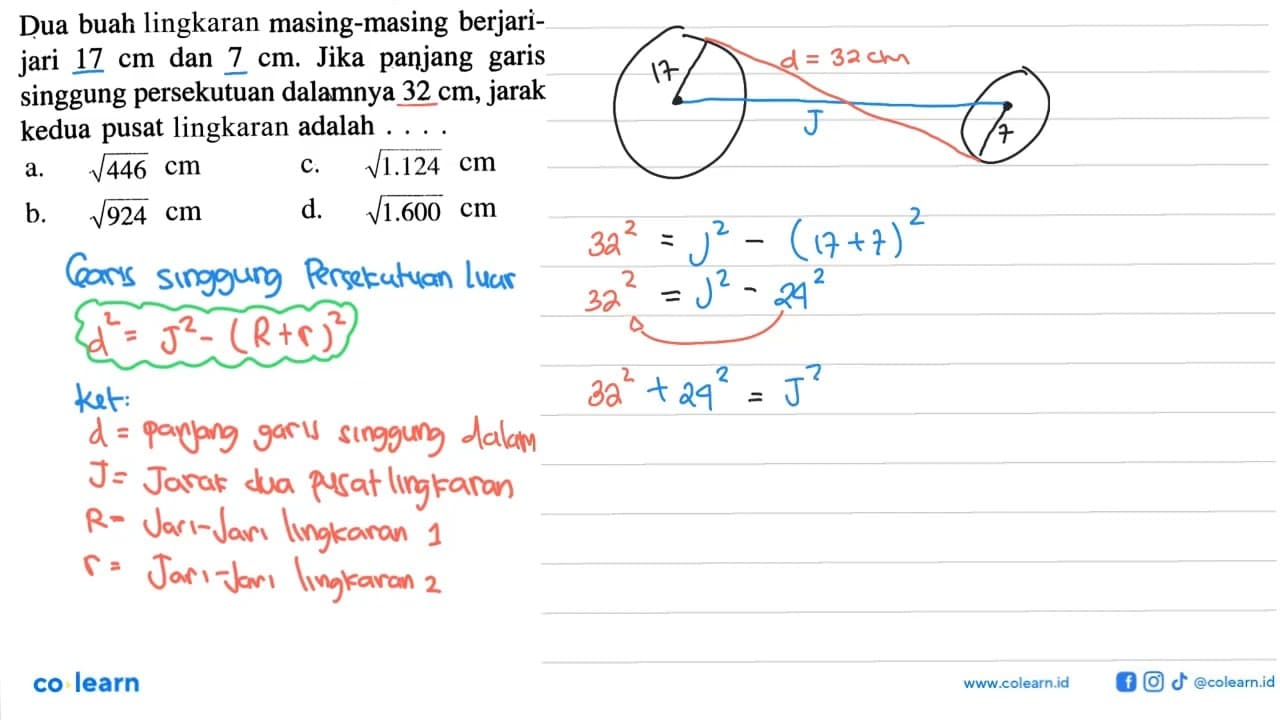 Dua buah lingkaran masing-masing berjari-
jari 17 cm dan 7 cm. Jika panjang garis
singgung persekutuan dalamnya 32 cm, jarak
kedua pusat lingkaran adalah . . . .
a. √446 cm c. √1.124 cm
b. √924 cm d. √1.600 cm
17
d = 32 cm
J
7
Garis singgung Persekutuan luar
d² = J² - (R+r)²
ket:
d = panjang garis singgung dalam
J = Jarak dua pusat lingkaran
R = Jari-Jari lingkaran 1
r = Jari-Jari lingkaran 2
32² = J² - (17+7)²
32² = J² - 24²
32² + 24² = J²
co learn
www.colearn.id
@colearn.id